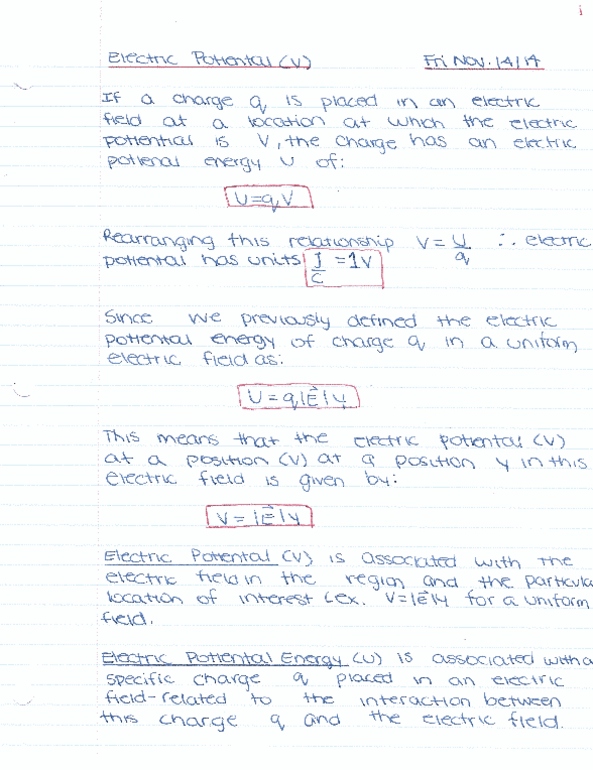 i
Electric Potential (V) Fri Nov. 14/14
If a charge q is placed in an electric
field at a location at which the electric
potential is V, the charge has an electric
potienal energy U of:
U=qV
Rearranging this relationship V = U/q ∴ electric
potiental has units J/C = 1V
Since we previously defined the electric
potiental energy of charge q in a uniform
electric field as:
U = q|E⃗|y
This means that the electric potiental (V)
at a position (V) at a position y in this
electric field is given by:
V = |E⃗|y
Electric Potiental (V) is associated with the
electric field in the region and the particula
location of interest (ex. V=|E⃗|y for a uniform
field.
Electric Pottiental Energy (U) is associated with a
specific charge q placed in an electric
field-related to the interaction between
this charge q and the electric field.